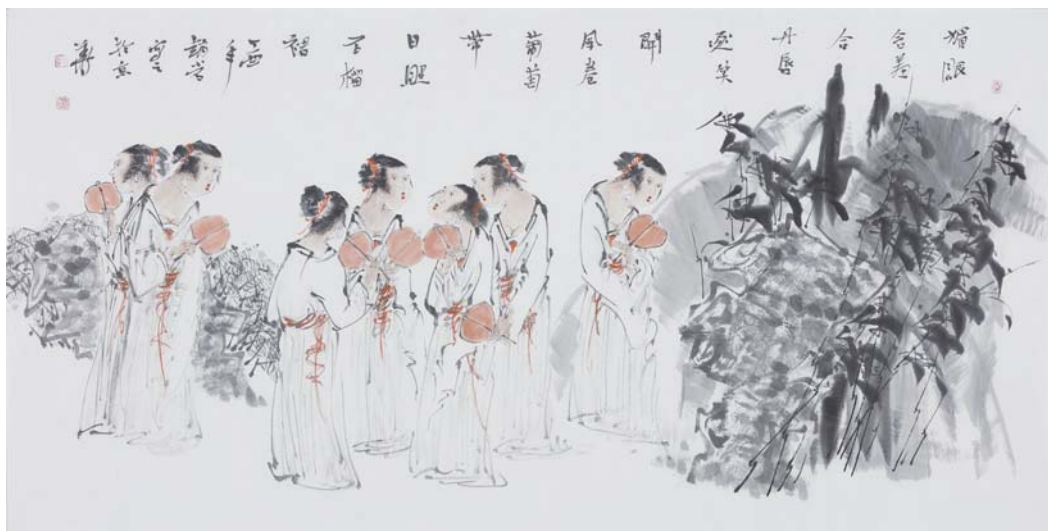 媚眼
含羞
合
丹唇
逐笑
開
風卷
葡萄
帶
日照
石榴
裙
丁酉
年